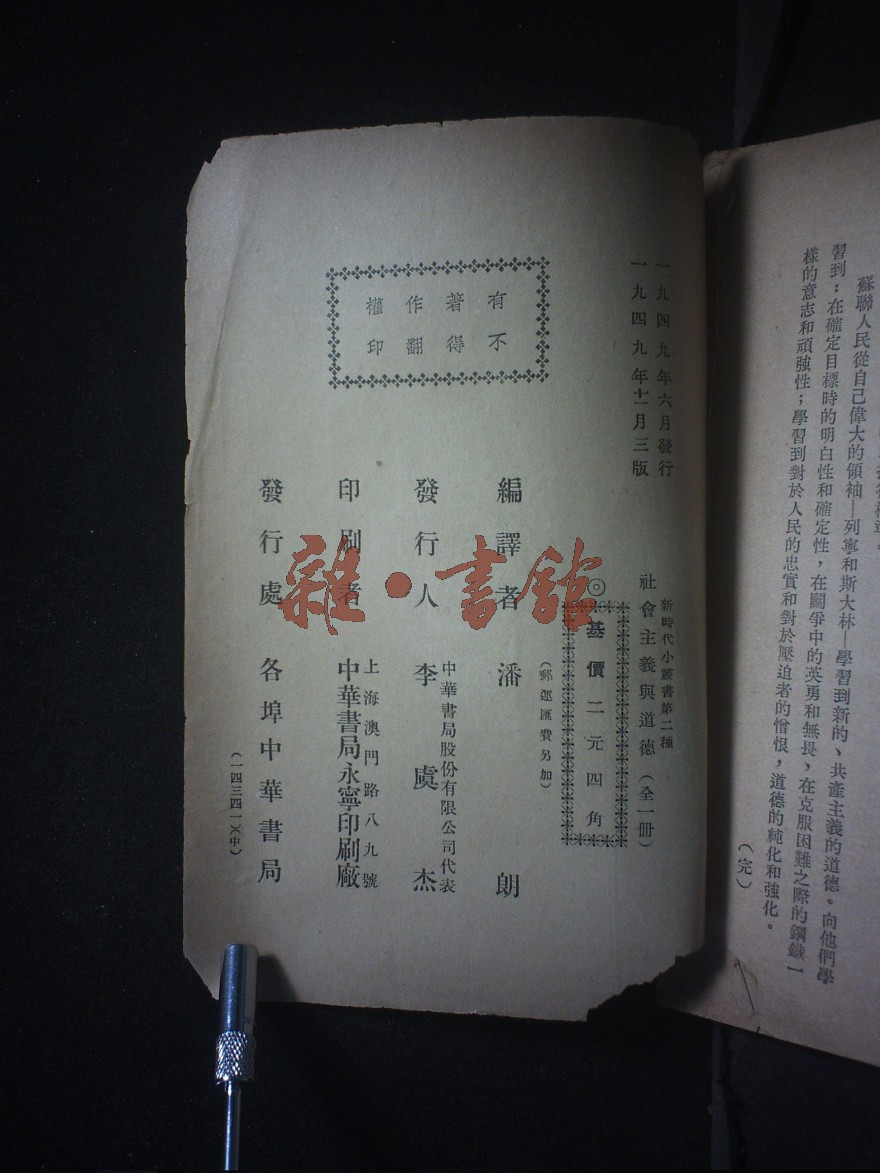 蘇聯人民從自己偉大的領袖—列寧和斯大林—學習到新的、共產主義的道德。向他們學
習到：在確定目標時的明白性和確定性，在鬭爭中的英勇和無畏，在克服困難之際的鋼鐵一
樣的意志和頑強性；學習到對於人民的忠實和對於壓迫者的憎恨，道德的純化和強化。
（完）
一九四九年六月發行
一九四九年十一月三版
有著作權
不得翻印
新時代小叢書第二種
社會主義與道德（全一冊）
◎基價二元四角
（郵運匯費另加）
編譯者 潘朗
發行人 中華書局股份有限公司代表
李虞杰
印刷者 上海澳門路八九號
中華書局永寧印刷廠
發行處 各埠中華書局
（一四三四一）（中）
雜·書館